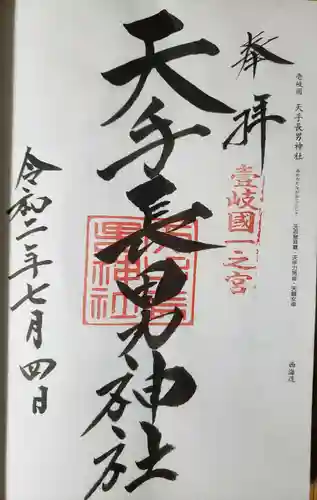 壱岐國 天手長男神社
奉拝
壹岐國一之宮
天手長男神社
令和二年七月四日